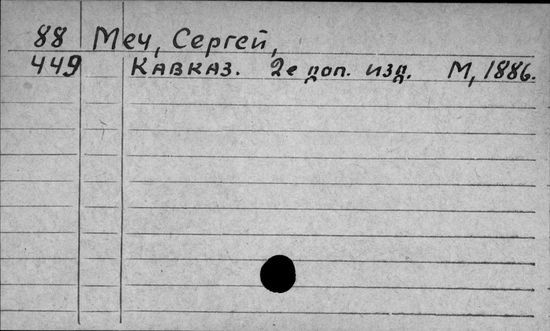 88 Меч, Сергей,
449 Кавказ. 2е доп. изд. М, 1886.